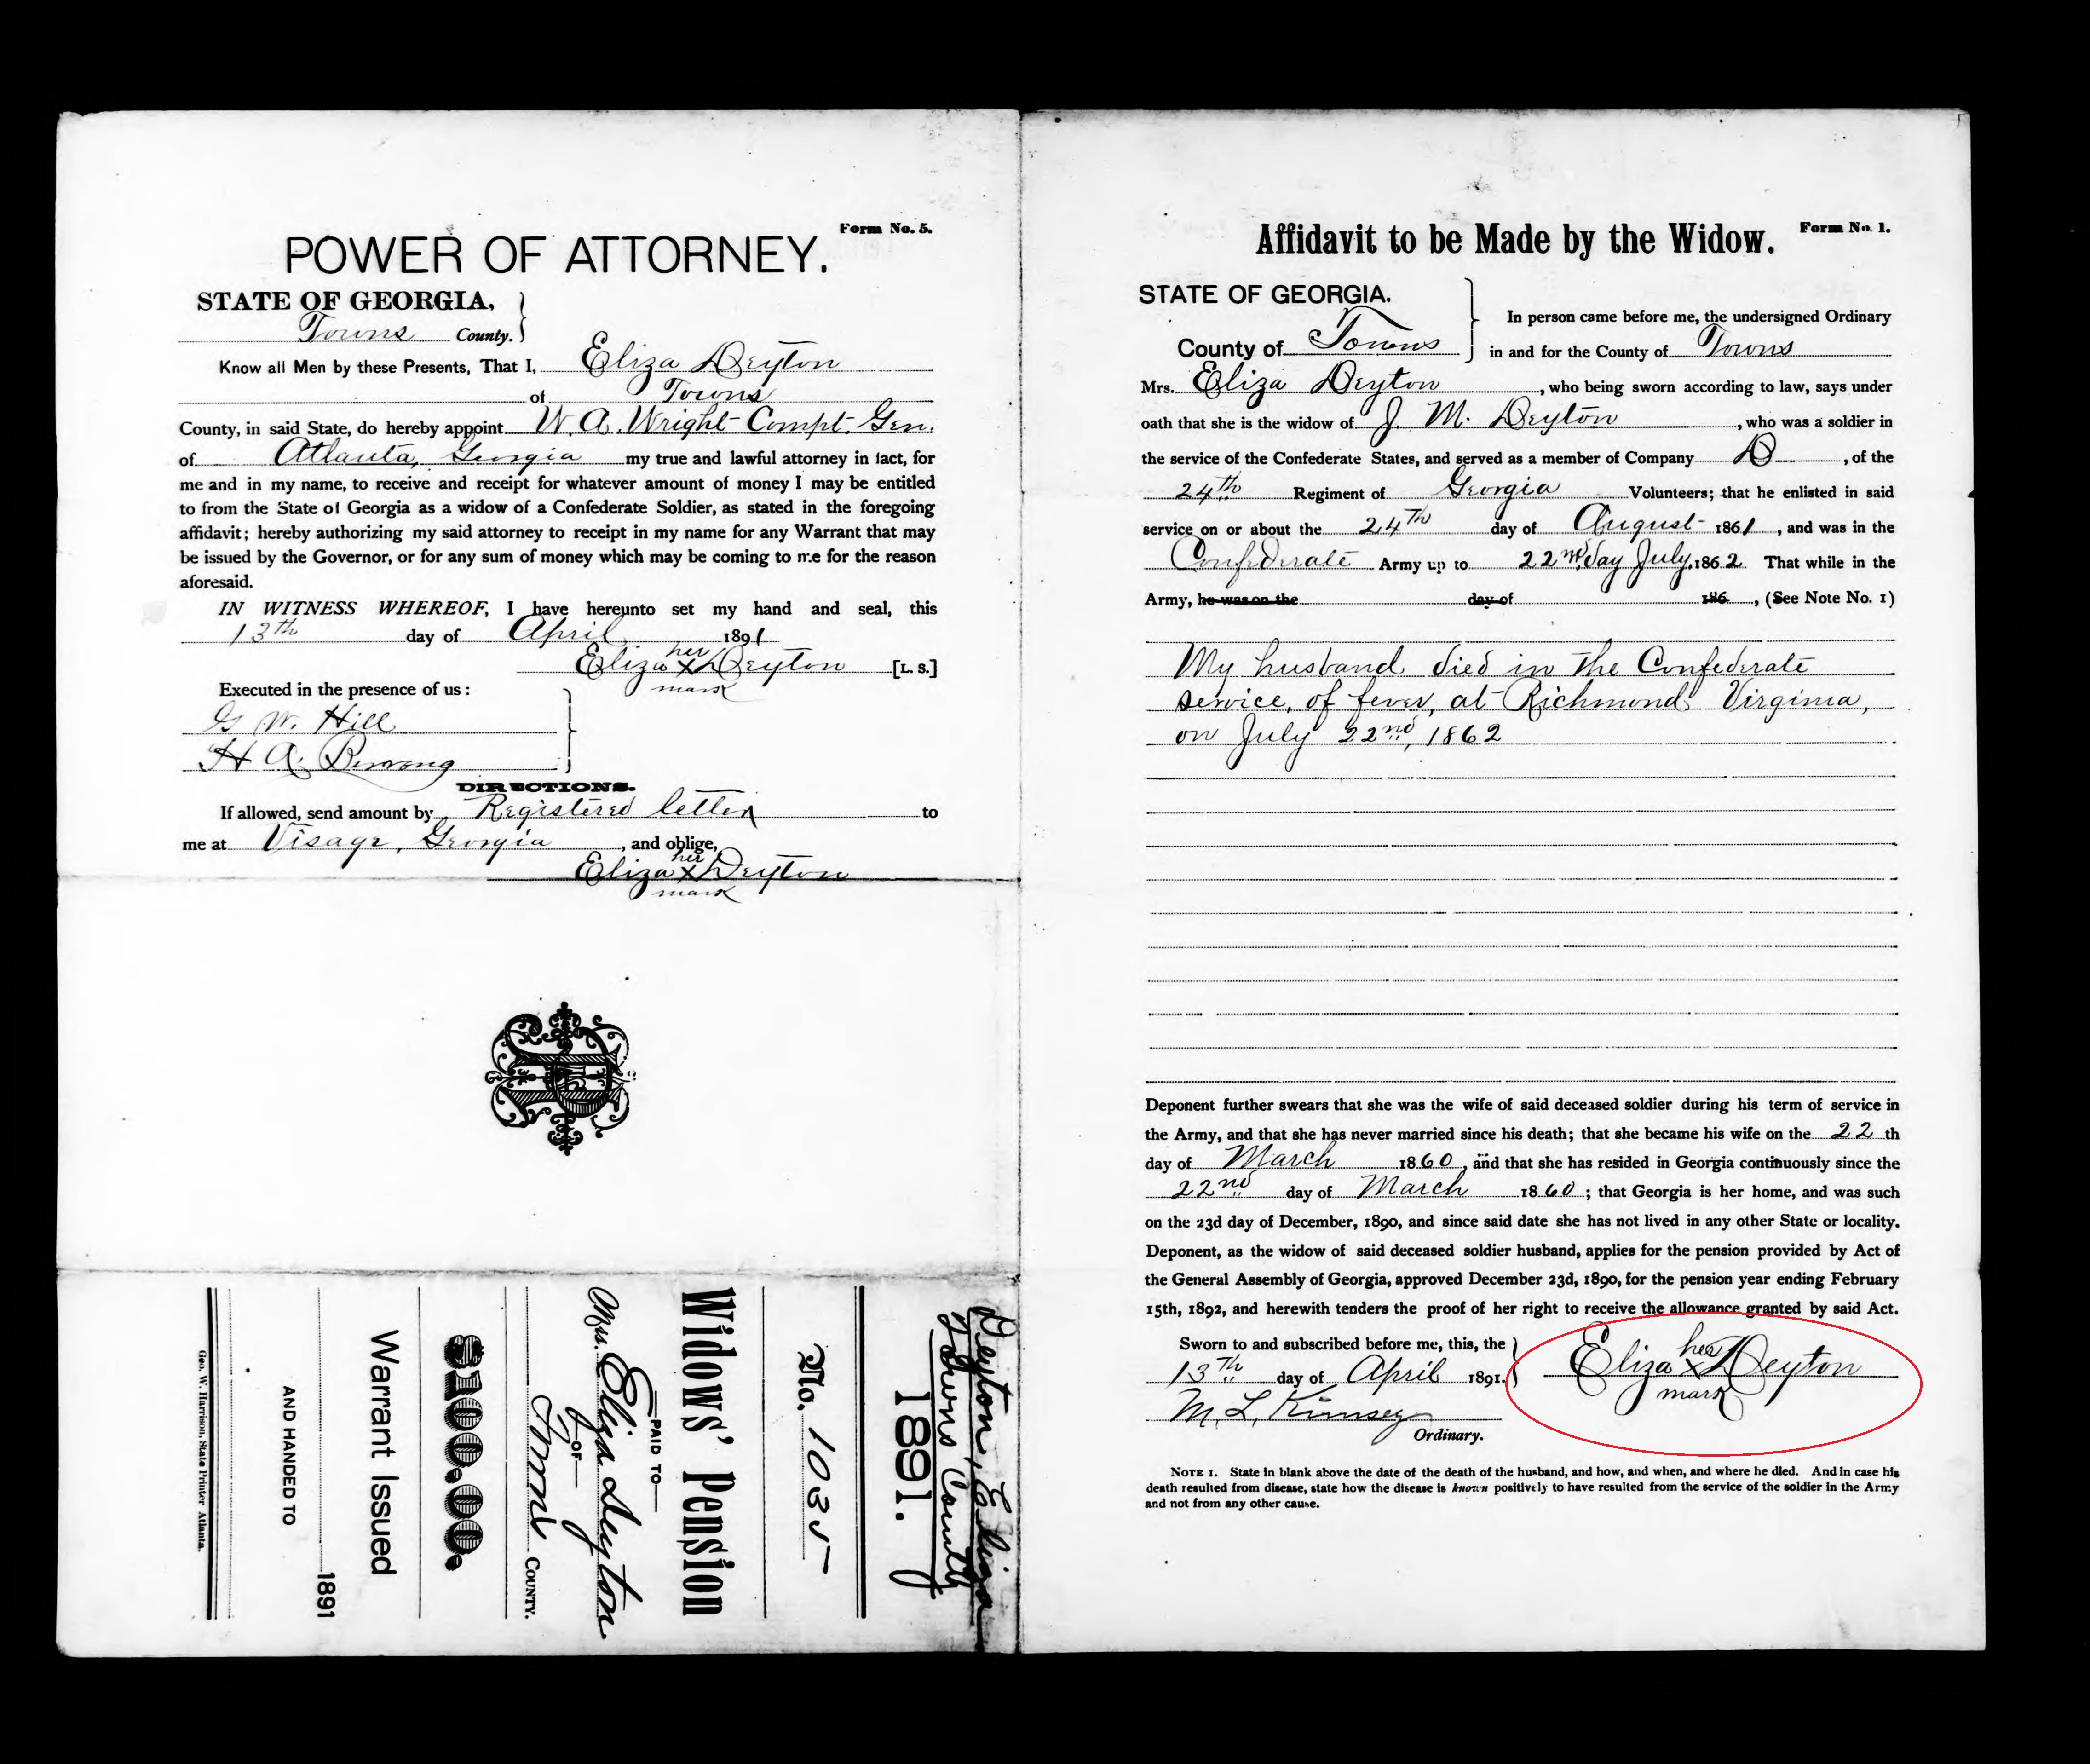 Form No. 5.
POWER OF ATTORNEY.
STATE OF GEORGIA,
Towns County.
Know all Men by these Presents, That I, Eliza Deyton
of Towns
County, in said State, do hereby appoint W. A. Wright Compt. Gen.
of Atlanta, Georgia my true and lawful attorney in fact, for
me and in my name, to receive and receipt for whatever amount of money I may be entitled
to from the State of Georgia as a widow of a Confederate Soldier, as stated in the foregoing
affidavit; hereby authorizing my said attorney to receipt in my name for any Warrant that may
be issued by the Governor, or for any sum of money which may be coming to me for the reason
aforesaid.
IN WITNESS WHEREOF, I have hereunto set my hand and seal, this
13th day of April 1891
Eliza her x Deyton [L. S.]
mark
Executed in the presence of us:
G W. Hill
H A.
DIRECTIONS.
If allowed, send amount by Registered letter to
me at Visage, Georgia, and oblige,
Eliza her x Deyton
mark
Deyton, Eliza
Towns County
1891.
No. 1035
Widows' Pension
PAID TO
Mrs. Eliza Deyton
OF
Towns COUNTY.
$100.00.
Warrant Issued
1891
AND HANDED TO
Geo. W. Harrison, State Printer Atlanta.
Form No. 1.
Affidavit to be Made by the Widow.
STATE OF GEORGIA.
County of Towns
In person came before me, the undersigned Ordinary
in and for the County of Towns
Mrs. Eliza Deyton, who being sworn according to law, says under
oath that she is the widow of J. M. Deyton, who was a soldier in
the service of the Confederate States, and served as a member of Company D, of the
24th Regiment of Georgia Volunteers; that he enlisted in said
service on or about the 24th day of August 1861, and was in the
Confederate Army up to 22nd day July 1862 That while in the
Army, he was on the day of 186, (See Note No. 1)
My husband died in the Confederate
service, of fever, at Richmond Virginia,
on July 22nd, 1862
Deponent further swears that she was the wife of said deceased soldier during his term of service in
the Army, and that she has never married since his death; that she became his wife on the 22 th
day of March 1860, and that she has resided in Georgia continuously since the
22nd day of March 1860; that Georgia is her home, and was such
on the 23d day of December, 1890, and since said date she has not lived in any other State or locality.
Deponent, as the widow of said deceased soldier husband, applies for the pension provided by Act of
the General Assembly of Georgia, approved December 23d, 1890, for the pension year ending February
15th, 1892, and herewith tenders the proof of her right to receive the allowance granted by said Act.
Sworn to and subscribed before me, this, the
13th day of April 1891.
Eliza her x Deyton
mark
M. L. Kimsey
Ordinary.
NOTE 1. State in blank above the date of the death of the husband, and how, and when, and where he died. And in case his
death resulted from disease, state how the disease is known positively to have resulted from the service of the soldier in the Army
and not from any other cause.